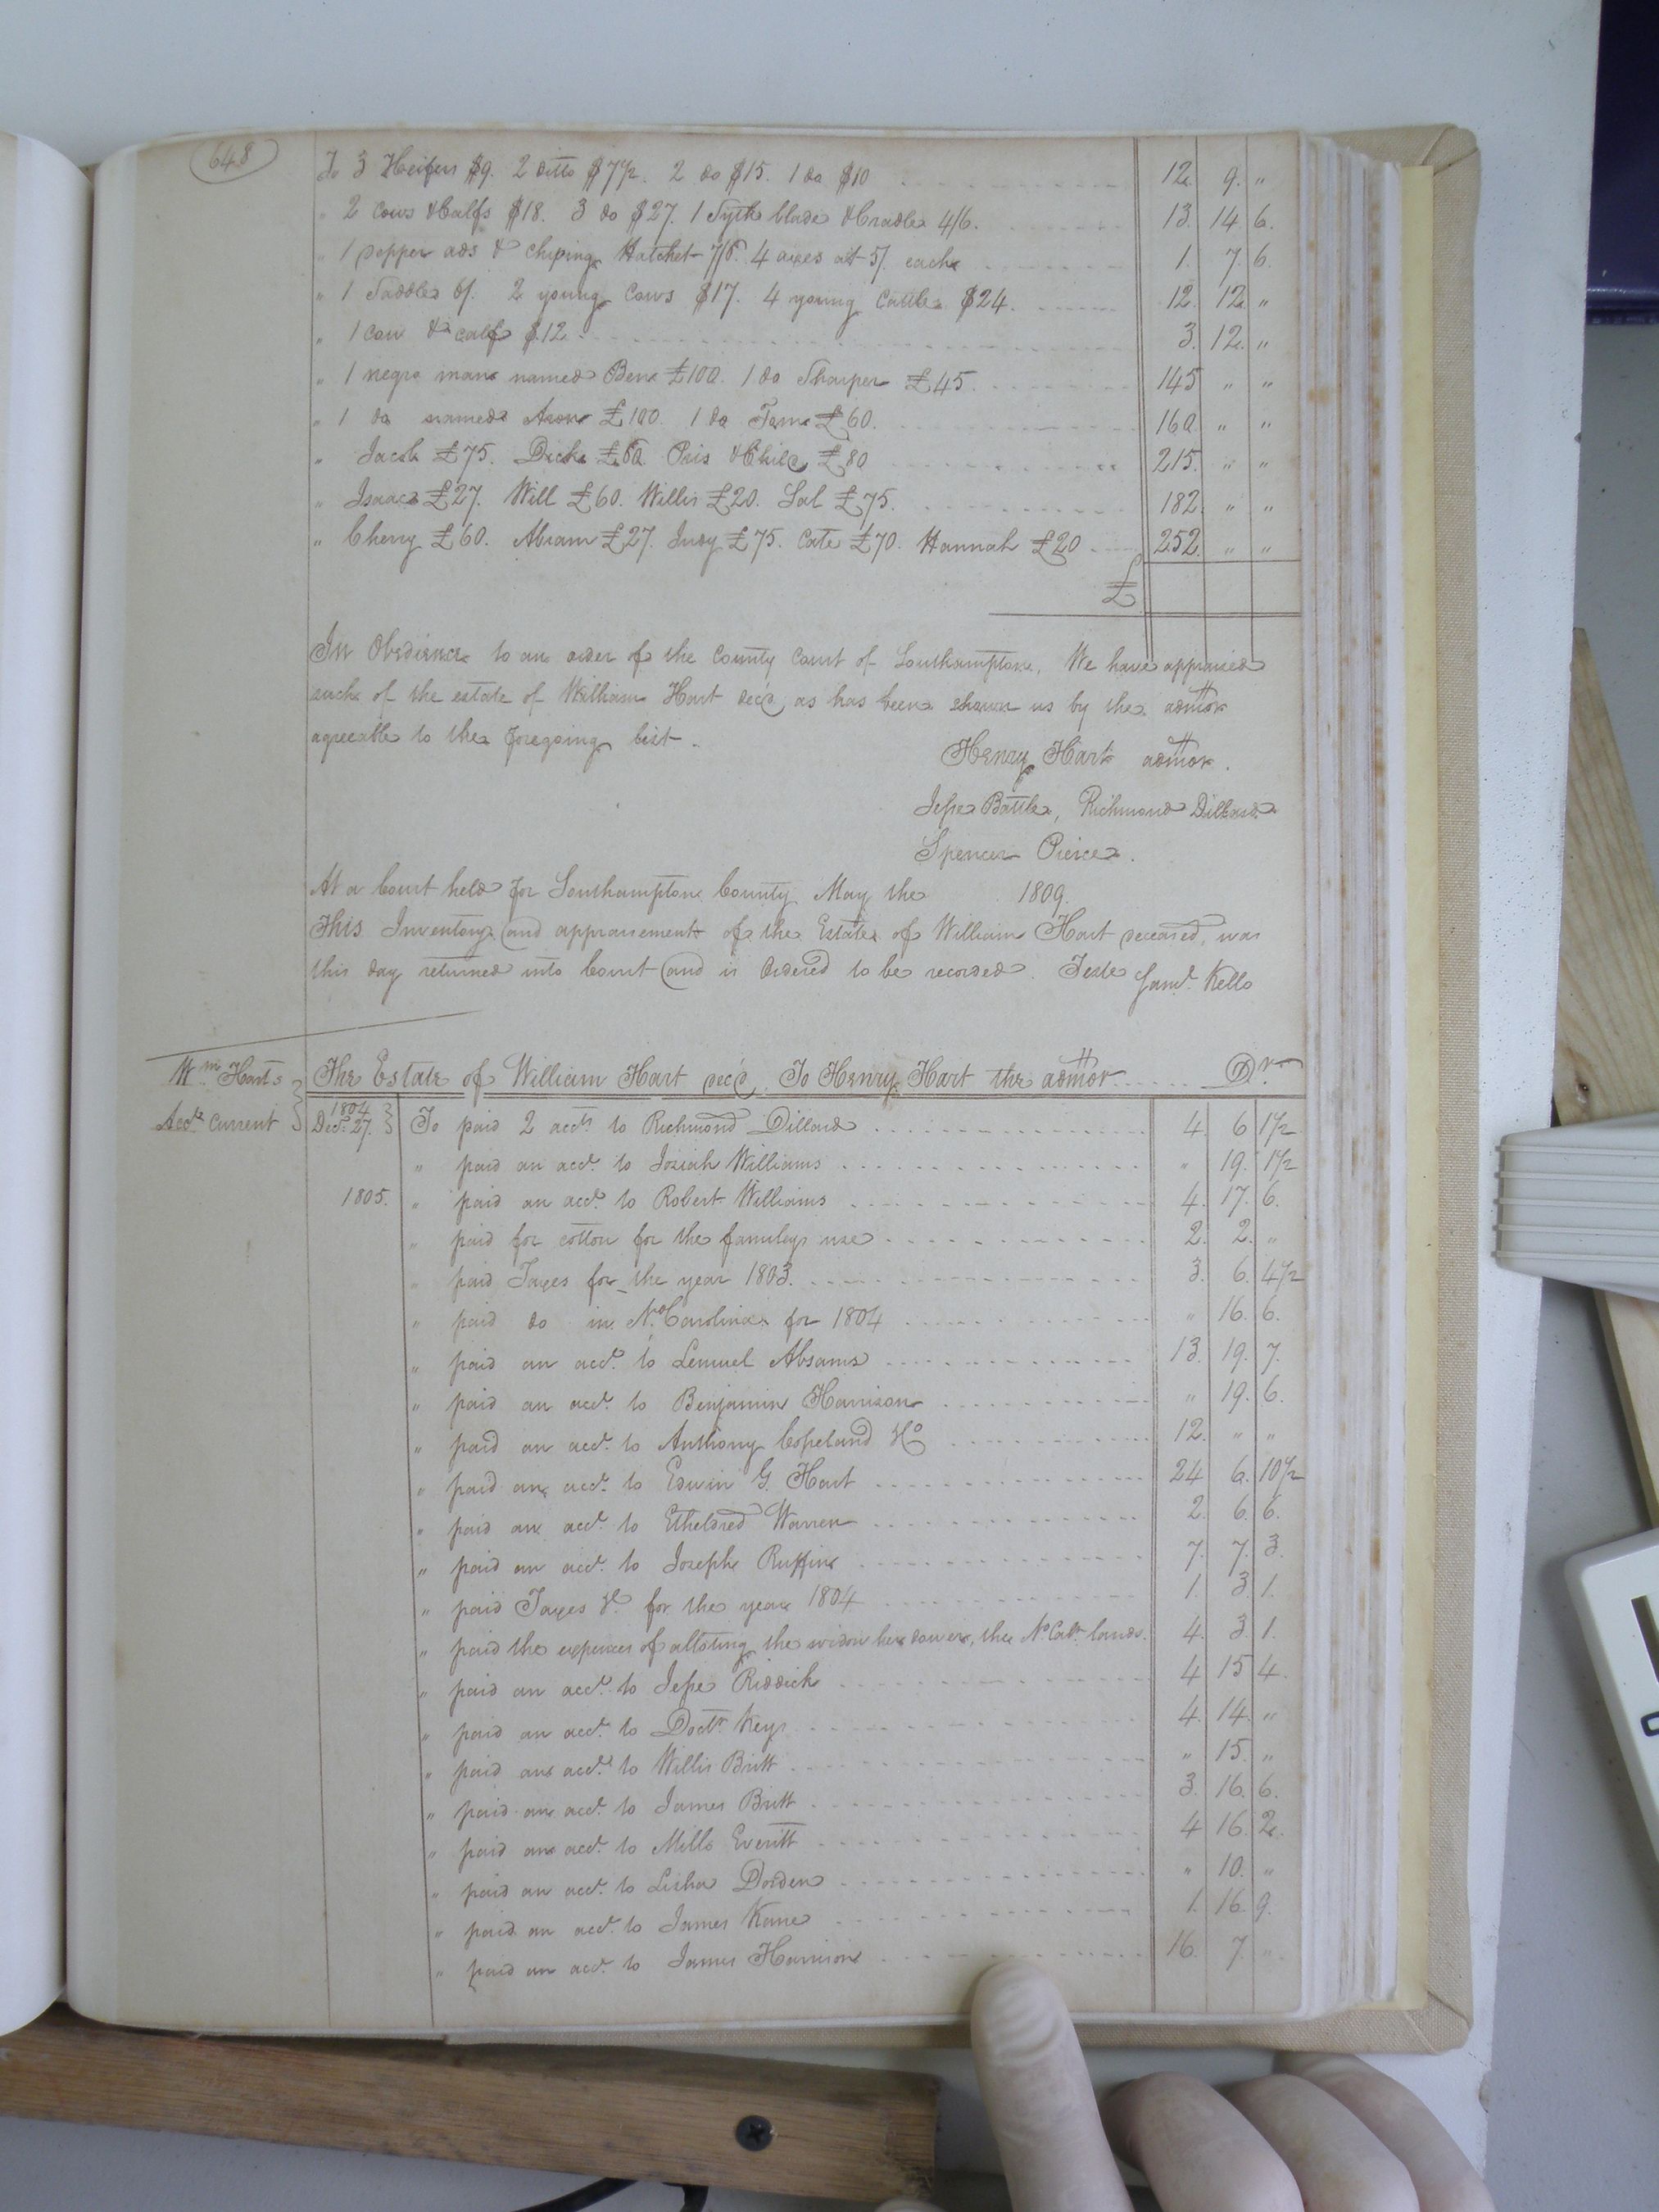 648
To 3 Heifers $9. 2 ditto $7½. 2 do $15. 1 do $10 12. 9. "
" 2 Cows & Calfs $18. 3 do $27. 1 Syth blade & Cradle 4/6. 13. 14 6.
" 1 pepper ads & Chiping Hatchet 7/6. 4 axes at 5/. each 1. 7. 6.
" 1 Saddle 6/. 2 young Cows $17. 4 young Cattle $24. 12. 12. "
" 1 Cow & calf $12 3. 12. "
" 1 negro man named Ben £100. 1 do Sharper £45. 145 " "
" 1 do named Aron £100. 1 do Tom £60. 160. " "
" Jacob £75. Dick £60. Pris & Child £80 215. " "
" Isaac £27. Will £60. Willis £20. Sal £75. 182. " "
" Cherry £60. Abram £27. Judy £75. Cate £70. Hannah £20 252. " "
£
In Obedience to an order of the County Court of Southampton. We have appraised
such of the estate of William Hart decd. as has been shown us by the admor
agreeable to the foregoing list.
Henry Hart admor.
Jesse Battle, Richmond Dillard
Spencer Pierce.
At a Court held for Southampton County May the 1809.
This Inventory and appraisement of the Estate of William Hart deceased, was
this day returned into Court and is Ordered to be recorded. Teste Saml. Kello
Wm. Harts
Acct. Current
The Estate of William Hart decd. To Henry Hart the admor Dr.
1804
Decr. 27. To paid 2 accts. to Richmond Dillard 4. 6 1½
" paid an acct. to Josiah Williams " 19. 1½
1805. " paid an acct. to Robert Williams 4. 17. 6.
" paid for cotton for the familys use 2. 2. "
" paid Taxes for the year 1803. 3. 6. 4½
" paid do in No. Carolina for 1804 " 16. 6.
" paid an acct. to Lemuel Absams 13. 19. 7.
" paid an acct. to Benjamin Harrison " 19. 6.
" paid an acct. to Anthony Copeland & Co 12. " "
" paid an acct. to Edwin G. Hart 24 6. 10½
" paid an acct. to Etheldred Warren 2. 6. 6.
" paid an acct. to Joseph Ruffin 7. 7. 3.
" paid Taxes &c. for the year 1804 1. 3. 1.
" paid the expences of alloting the widow her dower, the No. Car. lands 4. 3. 1.
" paid an acct. to Jesse Riddick 4. 15 4.
" paid an acct. to Doctr. Keys 4. 14. "
" paid an acct. to Willis Britt " 15. "
" paid an acct. to James Britt 3. 16. 6.
" paid an acct. to Mills Everitt 4 16. 2.
" paid an acct. to Lisha Dorden " 10. "
" paid an acct. to James Kane 1. 16. 9.
" paid an acct. to James Harrison 16. 7. "